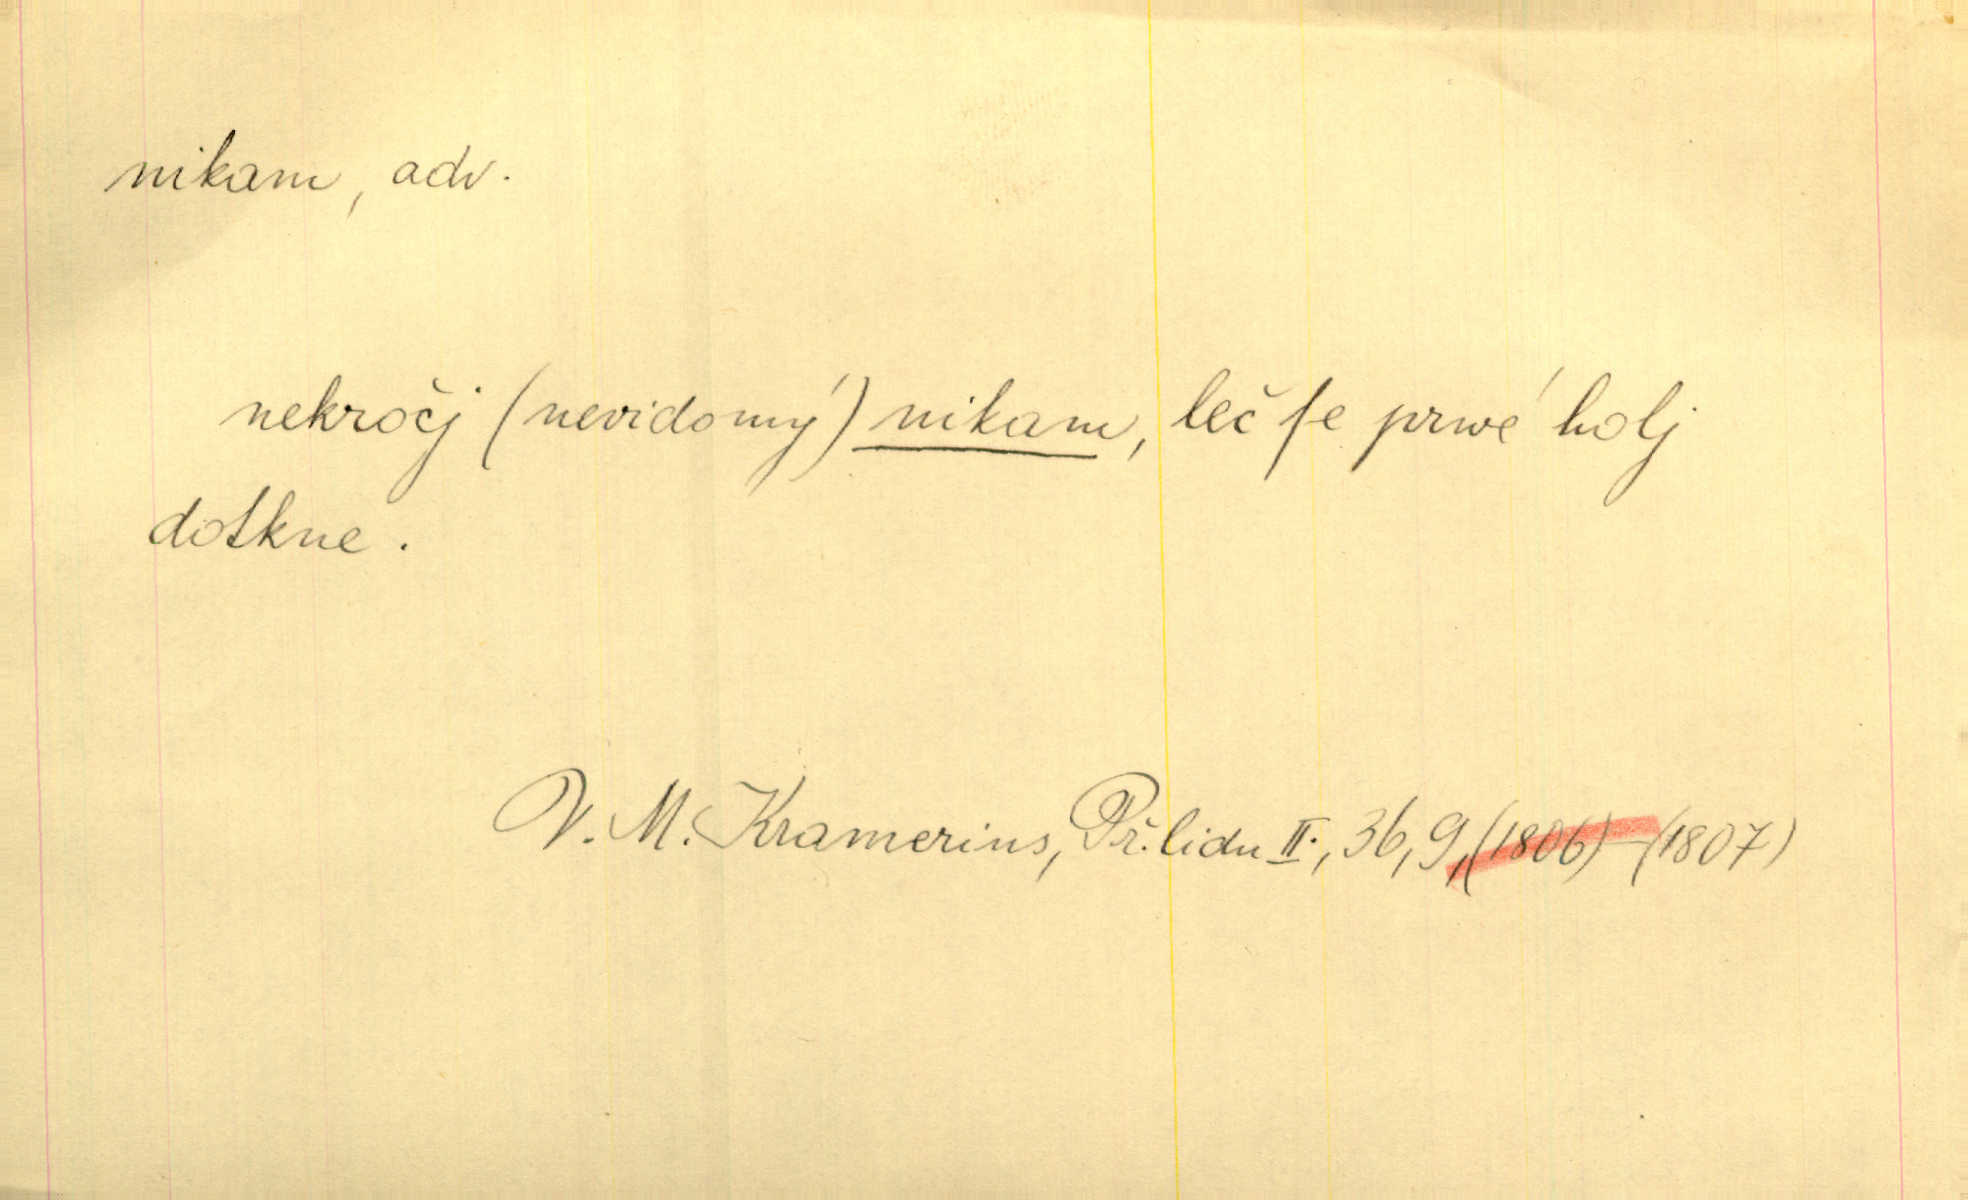 nikam, adv.
nekročj (nevidomý) nikam, leč ſe prwé holj
dotkne.
V. M. Kramerius, Př. lidu II., 36, 9, (1806) - (1807)